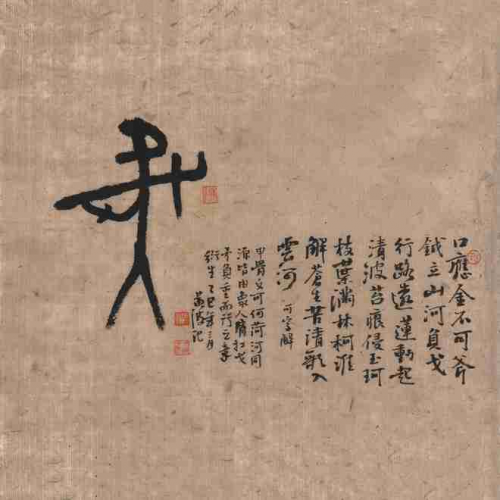 口應金不可斧
鉞立山河負戈
行路遠蓮動起
清波苔痕侵玉珂
枝葉滿林柯誰
解蒼生苦清歌入
雲河 可字解
甲骨文可何荷河同
源皆由象人肩扛戈
負重而行之意
衍生乙巳年月
記